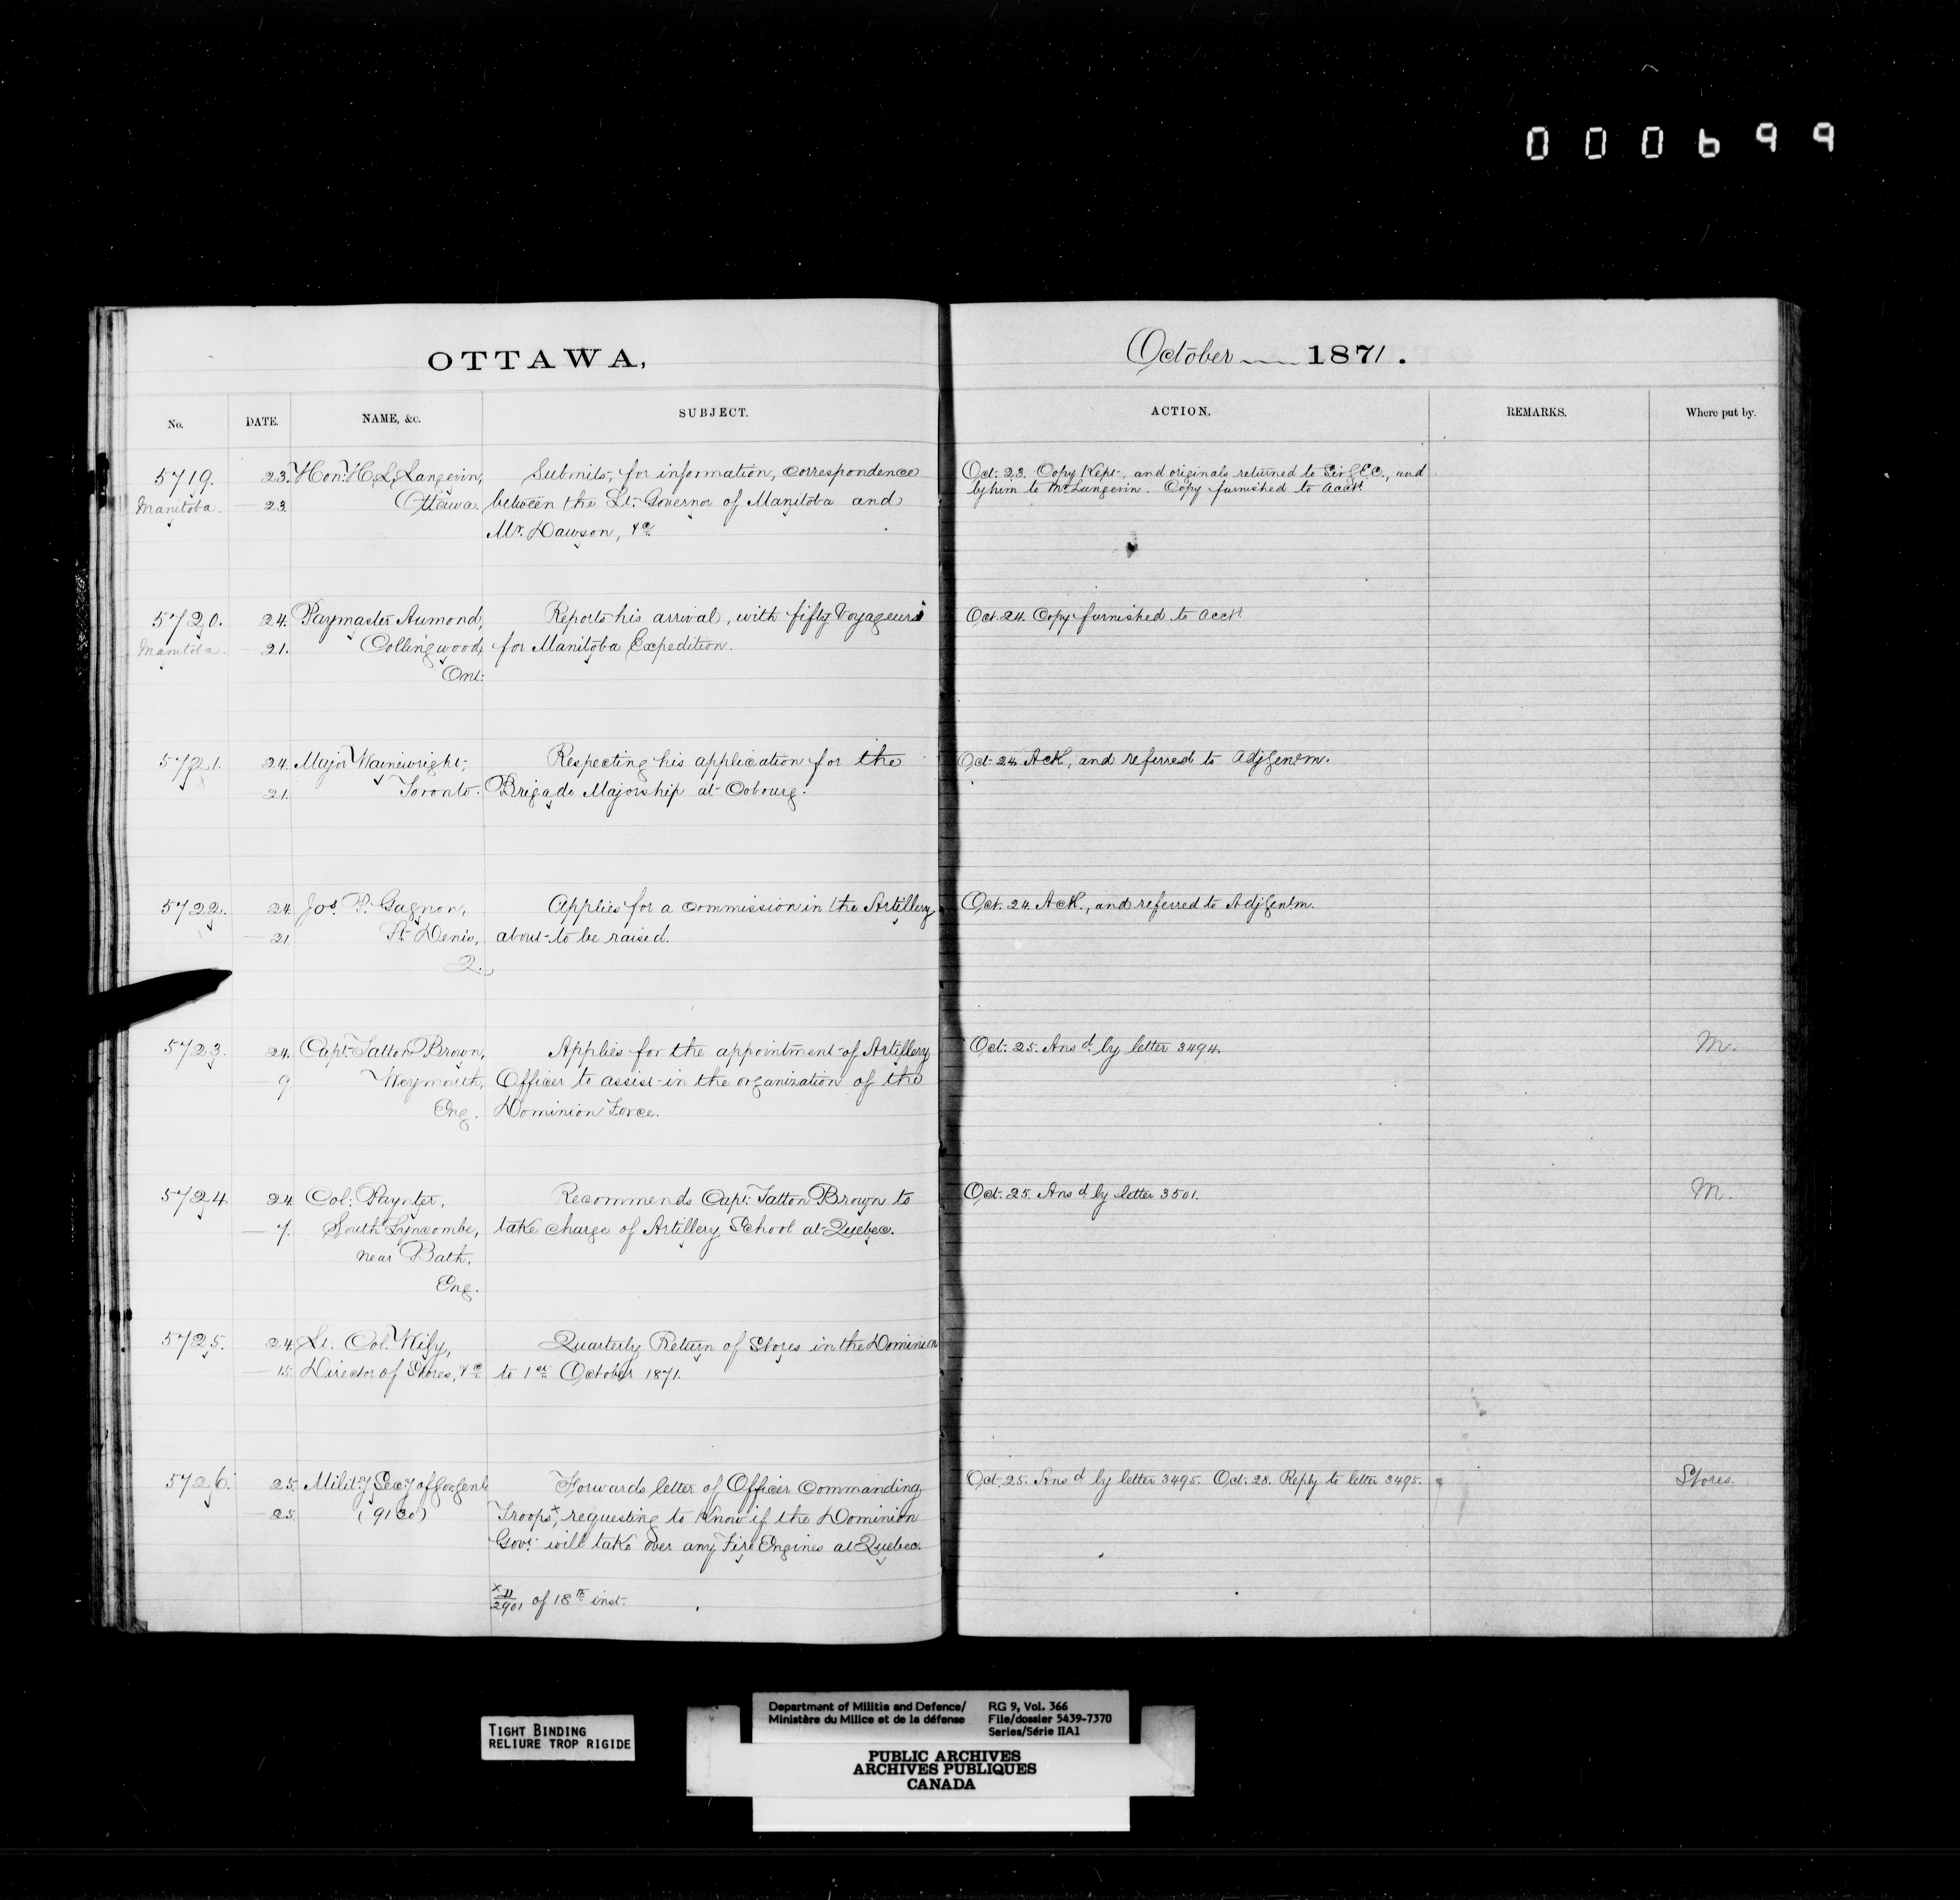 000699
OTTAWA,
October 1871.
No. DATE. NAME, &c. SUBJECT. ACTION. REMARKS. Where put by.
5719. 23. Hon: H. L. Langevin, Submits, for information, correspondence
Manitoba. 23. Ottawa. between the Lt. Governor of Manitoba and
Mr. Dawson, &c.
Oct. 23. Copy Kept, and originals returned to Sir G.E.C., and
by him to Mr. Langevin. Copy furnished to Acct.
5720. 24. Paymaster Aumond, Reports his arrival, with fifty Voyageurs
Manitoba. 21. Collingwood, for Manitoba Expedition.
Ont:
Oct. 24. Copy furnished to Acct.
5721. 24. Major Wainwright, Respecting his application for the
21. Toronto. Brigade Majorship at Cobourg.
Oct. 24. Ack, and referred to Adj Genl m.
5722. 24. Jos. P. Gagnon, Applies for a commission in the Artillery
21. St. Denis, about to be raised.
Q.
Oct. 24. Ack., and referred to Adj Genl m.
5723. 24. Capt. Tatton Brown, Applies for the appointment of Artillery
9 Weymouth, Officer to assist in the organization of the
Eng. Dominion Force.
Oct. 25. Ansd. by letter 3494. M.
5724. 24. Col. Paynter, Recommends Capt. Tatton Brown to
7. South Lyncombe, take charge of Artillery School at Quebec.
near Bath,
Eng.
Oct. 25. Ansd by letter 3501. M.
5725. 24. Lt. Col. Wily, Quarterly Return of Stores in the Dominion
15. Director of Stores, &c. to 1st October 1871.
5726. 25. Milit.y Sec.y of Gov. Genl Forwards letter of Officer Commanding
25. (9130) Troops x, requesting to know if the Dominion
Govt. will take over any Fire Engines at Quebec.
x 11/2901 of 18th inst.
Oct. 25. Ansd by letter 3495. Oct. 28. Reply to letter 3495. Stores.
TIGHT BINDING
RELIURE TROP RIGIDE
Department of Militia and Defence/
Ministère du Milice et de la défense
RG 9, Vol. 366
File/dossier 5439-7370
Series/Série IIA1
PUBLIC ARCHIVES
ARCHIVES PUBLIQUES
CANADA